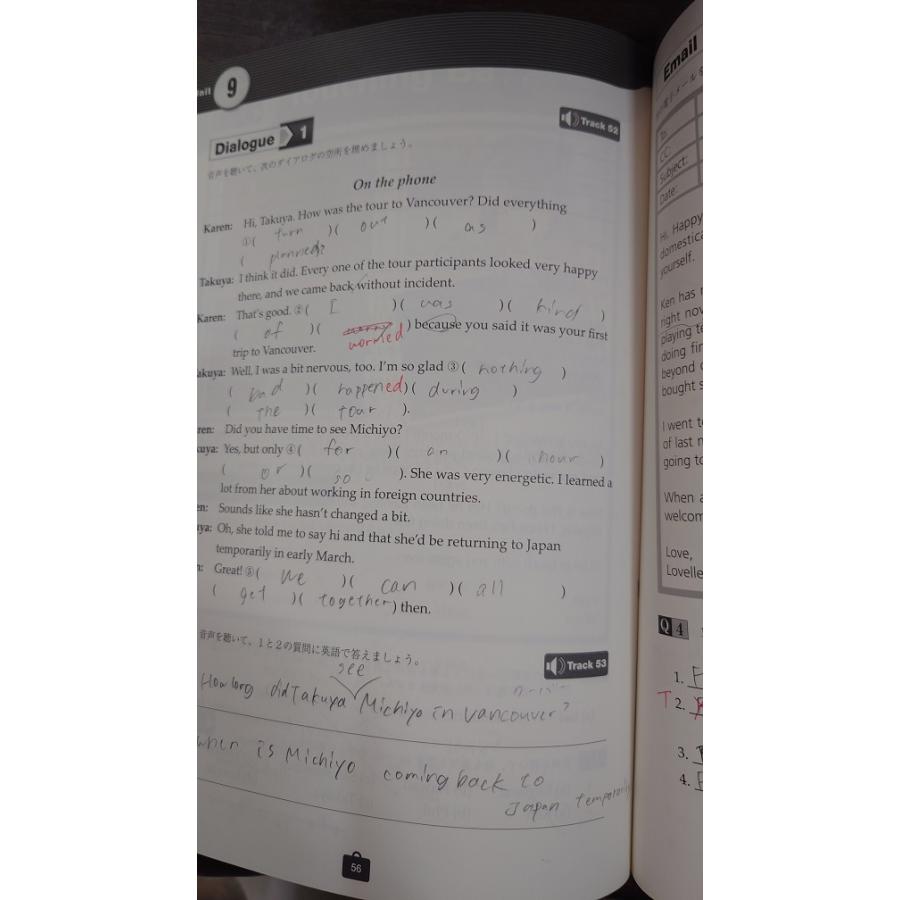 Unit 9
Dialogue 1
Track 52
音声を聴いて、次のダイアログの空所を埋めましょう。
On the phone
Karen: Hi, Takuya. How was the tour to Vancouver? Did everything
①( turn )( out )( as )
( planned?
Takuya: I think it did. Every one of the tour participants looked very happy
there, and we came back without incident.
Karen: That's good. ②( I )( was )( kind )
( of )( worried ) because you said it was your first
trip to Vancouver.
akuya: Well, I was a bit nervous, too. I'm so glad ③( nothing )
( bad )( happened)( during )
( the )( tour ).
ren: Did you have time to see Michiyo?
kuya: Yes, but only ④( for )( an )( hour )
( or )( so ). She was very energetic. I learned a
lot from her about working in foreign countries.
en: Sounds like she hasn't changed a bit.
ya: Oh, she told me to say hi and that she'd be returning to Japan
temporarily in early March.
n: Great! ⑤( we )( can )( all )
( get )( together) then.
音声を聴いて、1と2の質問に英語で答えましょう。
Track 53
see
How long did Takuya Michiyo in Vancouver?
when is Michiyo coming back to
Japan
56
Email
To:
CC:
Subject:
Date:
Hi, Happy
domestica
yourself.
Ken has
right nov
playing te
doing fin
beyond
bought s
I went t
of last
going to
When a
welcom
Love,
Lovelle
Q 4
1.
T 2.
3.
4.